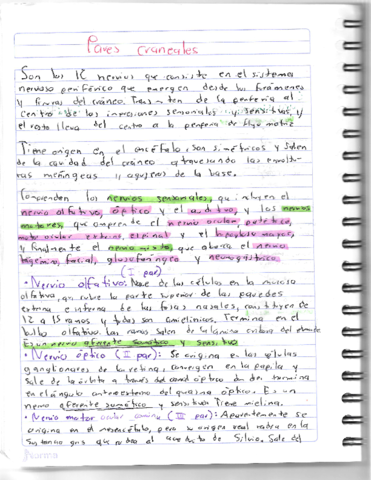 Pares craneales
Son los 12 nervios que consiste en el sistema
nervioso periférico que emergen desde los forámenes
y fisuras del cráneo. Trans ten de la periferia al
centro de las impresiones sensoriales y sensitivas, y
el resto lleva del centro a la periferia de flujo motriz
Tiene origen en el encéfalo, son simétricos y salen
de la cavidad del cráneo atravesando las envoltu-
ras meníngeas y agujeros de la base.
Comprenden los nervios sensoriales, que incluyen el
nervio olfativo, óptico y el auditivo, y los nervios
motores, que comprende el nervio ocular, patético,
motor ocular externo, espinal y el hipogloso mayor,
y finalmente el nervio mixto, que abarca el nervio
trigémino, facial, glosofaríngeo y neumogástrico.
(I par)
• Nervio olfativo: Nace de las células en la mucosa
olfativa, que cubre la parte superior de las paredes
externa e interna de las fosas nasales, con
12 a 15 ramos y todos son amielínicos. Termina en el
bulbo olfativo. Las ramas salen de la lámina cribosa del etmoide
Es un nervio aferente somático y sensitivo
• Nervio óptico (II par): Se origina en las células
ganglionares de la retina, convergen en la papila y
sale de la órbita a través del canal óptico donde termina
en el ángulo anteroexterno del quiasma óptico. Es un
nervio aferente somático y sensitivo. Tiene mielina.
• Nervio motor ocular común (III par): Aparentemente se
origina en el mesencéfalo, pero su origen real radica en la
sustancia gris que rodea al acueducto de Silvio. Sale del
Norma